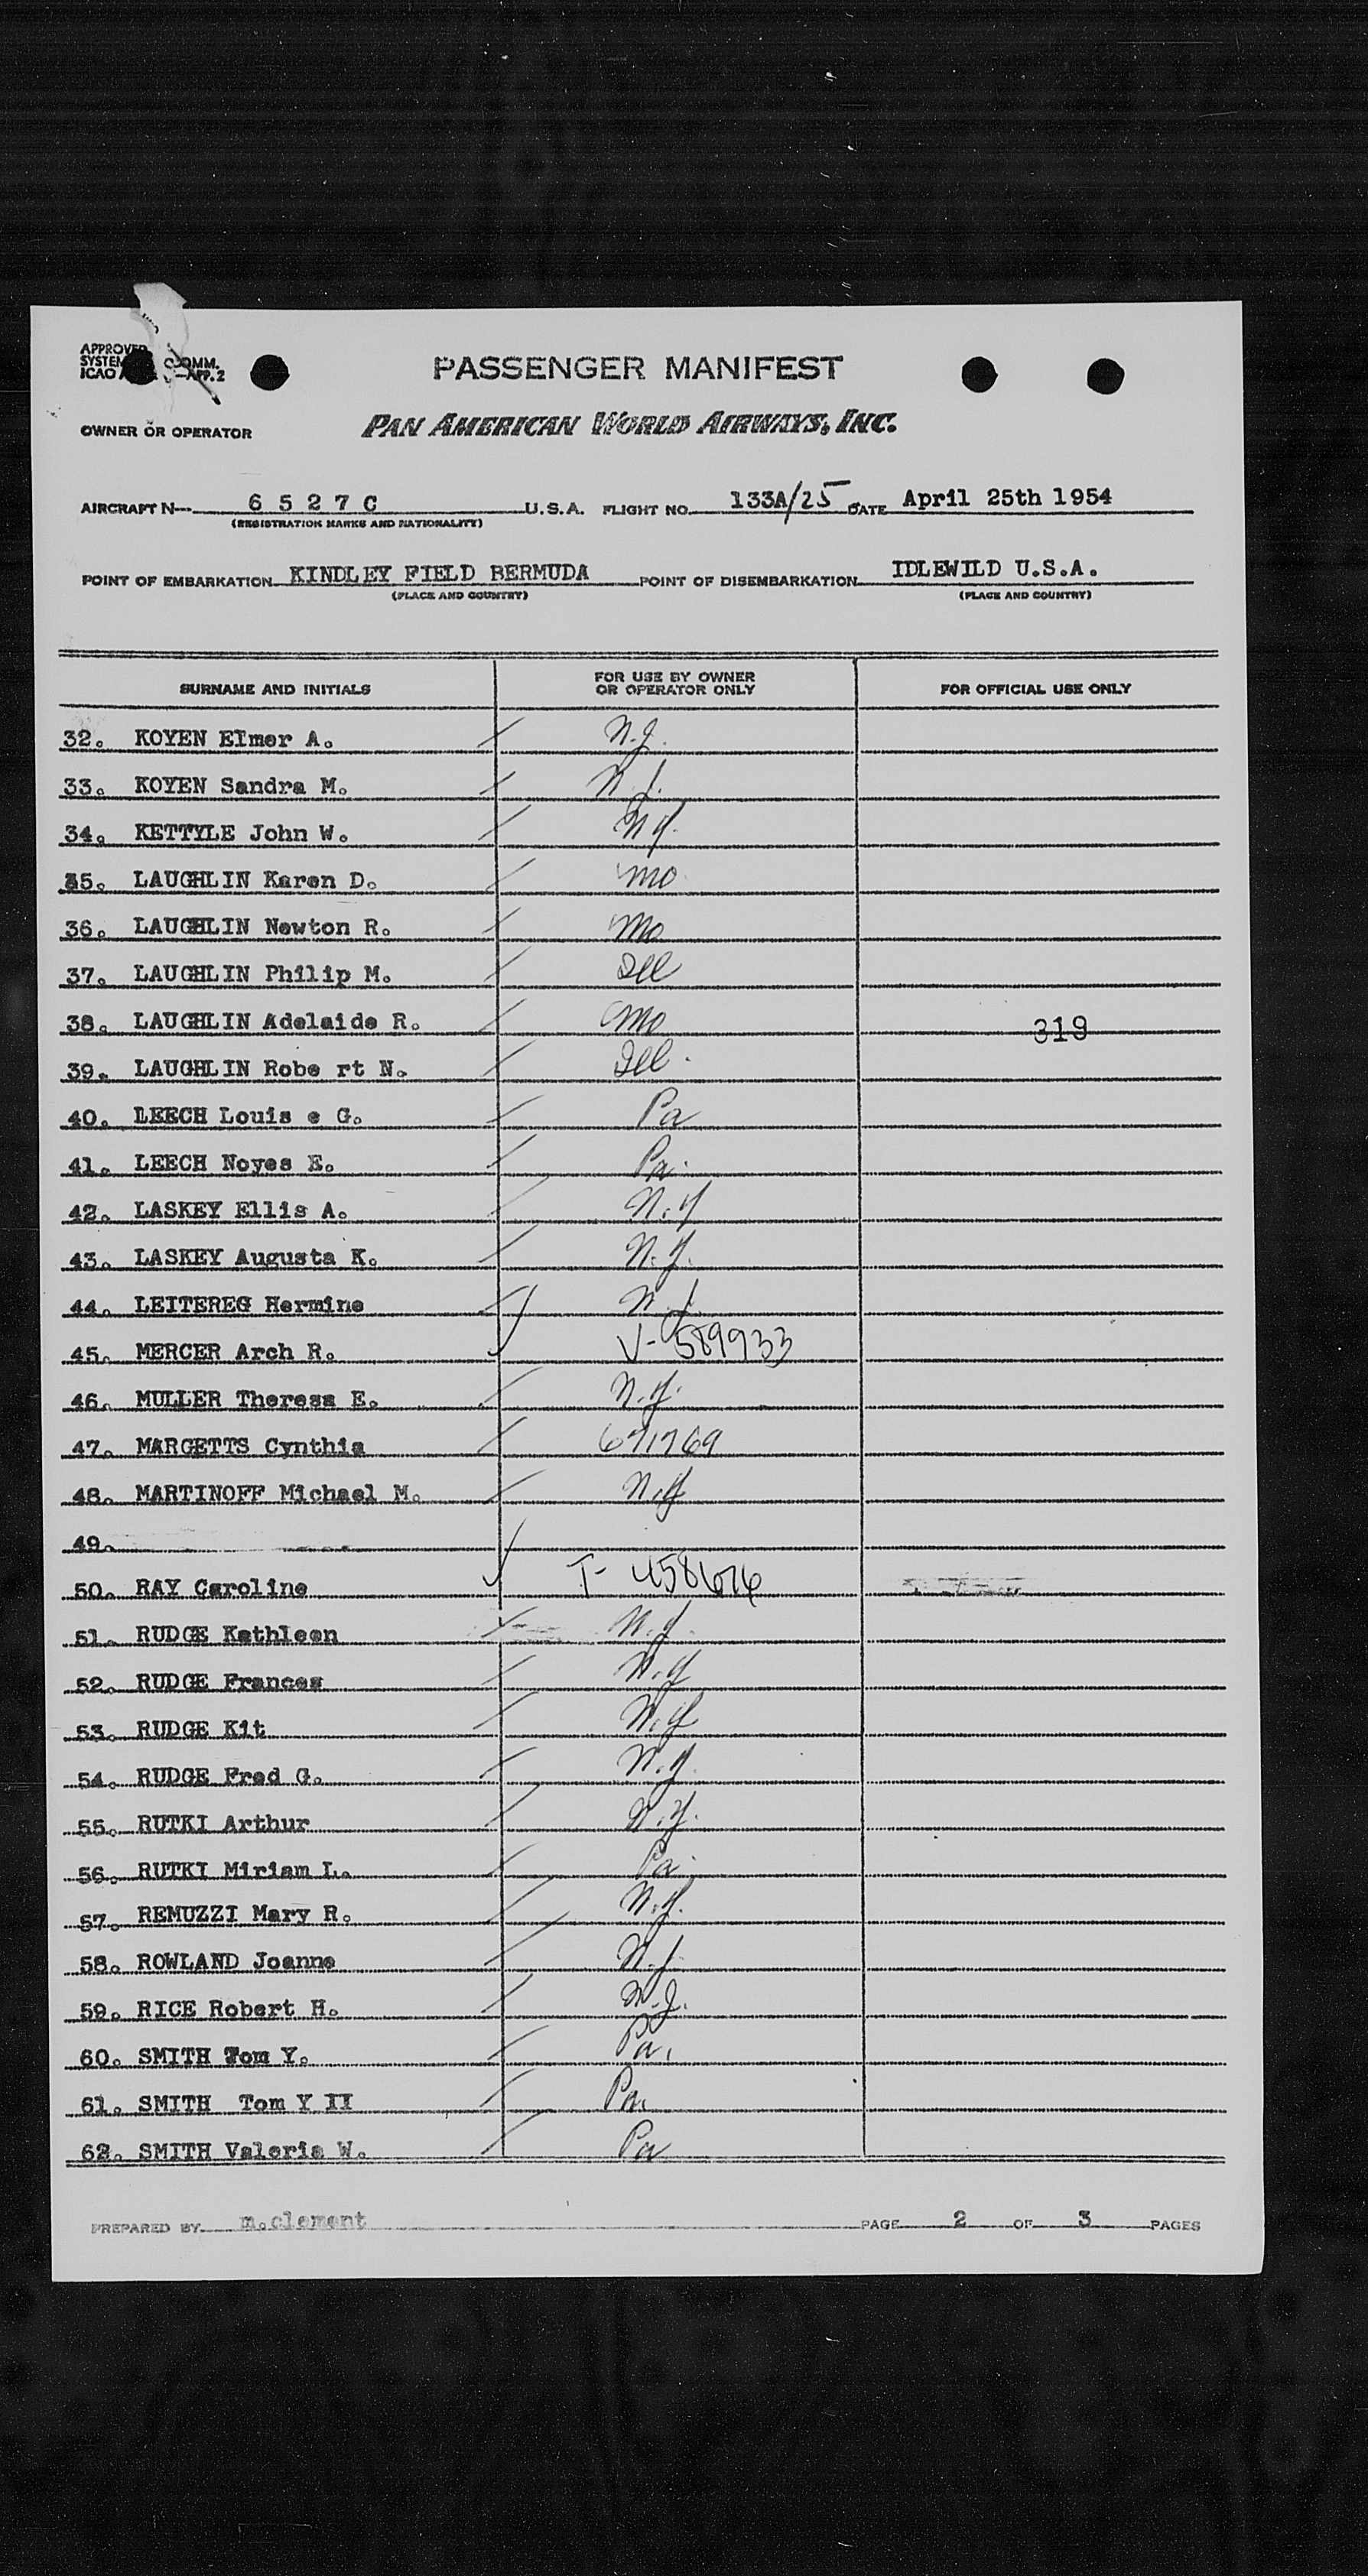 APPROVED
SYSTEM COMM.
ICAO APP. 2
PASSENGER MANIFEST
OWNER OR OPERATOR PAN AMERICAN WORLD AIRWAYS, INC.
AIRCRAFT N- 6 5 2 7 C U.S.A. FLIGHT NO. 133A/25 DATE April 25th 1954
(REGISTRATION MARKS AND NATIONALITY)
POINT OF EMBARKATION KINDLEY FIELD BERMUDA POINT OF DISEMBARKATION IDLEWILD U.S.A.
(PLACE AND COUNTRY) (PLACE AND COUNTRY)
SURNAME AND INITIALS FOR USE BY OWNER OR OPERATOR ONLY FOR OFFICIAL USE ONLY
32. KOYEN Elmer A. / N.J.
33. KOYEN Sandra M. / N.J.
34. KETTYLE John W. / N.Y.
35. LAUGHLIN Karen D. / Mo
36. LAUGHLIN Newton R. / Mo
37. LAUGHLIN Philip M. / Ill
38. LAUGHLIN Adelaide R. / Mo 319
39. LAUGHLIN Robe rt N. / Ill.
40. LEECH Louis e G. / Pa
41. LEECH Noyes E. / Pa.
42. LASKEY Ellis A. / N.Y
43. LASKEY Augusta K. / N.Y.
44. LEITEREG Hermine / N.J.
45. MERCER Arch R. ✓ V-589933
46. MULLER Theresa E. / N.Y.
47. MARGETTS Cynthia / 671769
48. MARTINOFF Michael M. / N.Y
49.
50. RAY Caroline ✓ T-458676
51. RUDGE Kathleen / N.Y.
52. RUDGE Frances / N.Y
53. RUDGE Kit / N.Y
54. RUDGE Fred G. / N.Y.
55. RUTKI Arthur / N.Y.
56. RUTKI Miriam L. / Pa.
57. REMUZZI Mary R. / N.Y.
58. ROWLAND Joanne / N.J.
59. RICE Robert H. / N.J.
60. SMITH Tom Y. / Pa.
61. SMITH Tom Y II / Pa.
62. SMITH Valeria W. / Pa
PREPARED BY m.clement PAGE 2 OF 3 PAGES